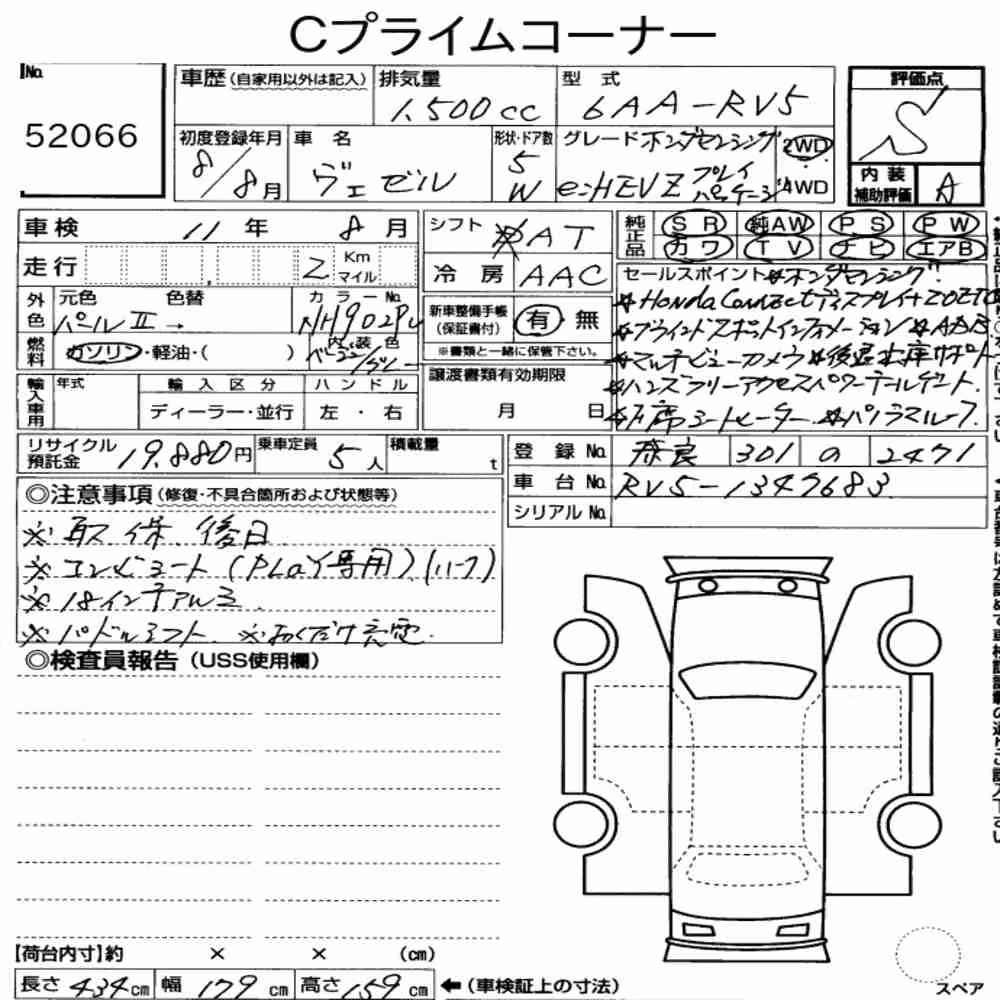 Cプライムコーナー
No.
52066
車歴(自家用以外は記入)
排気量
1,500cc
型 式
6AA-RV5
評価点
S
内装補助評価
A
初度登録年月
8/8月
車 名
ヴェゼル
形状・ドア数
5
W
グレード ホンダセンシング
e:HEVZ プレイパッケージ
2WD
・
4WD
車検 11年 8月
シフト AT
純正品 SR 純AW PS PW
カワ TV ナビ エアB
走行 2 Km マイル
冷房 AAC
外色
元色 色替
パールⅡ→
カラーNo.
NH902P
新車整備手帳(保証書付)
有・無
※書類と一緒に保管下さい。
燃料
ガソリン・軽油・( )
内装色
グレー
セールスポイント ☆ホンダセンシング
☆Honda Connectディスプレイ+
☆ブラインドスポットインフォメーション
☆マルチビューカメラ ☆後退出庫サポート
☆ハンズフリーアクセスパワーテールゲート.
☆シートヒーター ☆パノラマルーフ.
輸入車用
年式
輸入区分
ハンドル
ディーラー・並行
左・右
譲渡書類有効期限
月 日
リサイクル預託金 19,880円
乗車定員 5人
積載量 t
登録No. 奈良 301 の 2471
車台No. RV5-1347683
シリアルNo.
◎注意事項(修復・不具合箇所および状態等)
※取、保、後日
※コンビシート(PLaY専用)(ハーフ)
※18インチアルミ
※パドルシフト、※おくだけ充電.
◎検査員報告(USS使用欄)
【荷台内寸】約 × × (cm)
長さ 434cm 幅 179cm 高さ 159cm ←(車検証上の寸法)
スペア